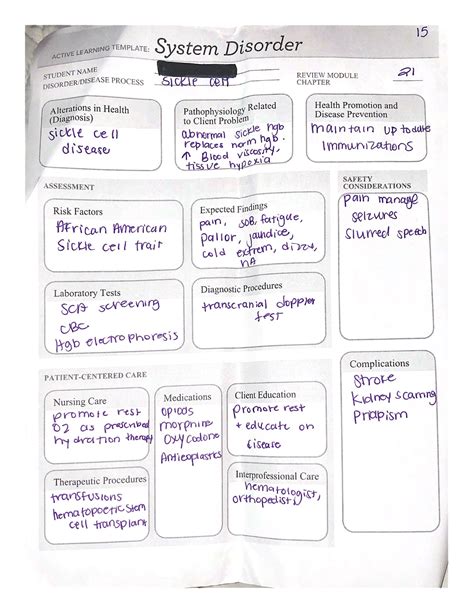 15
ACTIVE LEARNING TEMPLATE: System Disorder
STUDENT NAME
DISORDER/DISEASE PROCESS Sickle cell
REVIEW MODULE CHAPTER 21
Alterations in Health (Diagnosis)
sickle cell
disease
Pathophysiology Related to Client Problem
abnormal sickle hgb
replaces norm hgb.
↑ Blood viscosity,
tissue hypoxia
Health Promotion and Disease Prevention
maintain up to date
Immunizations
ASSESSMENT
SAFETY CONSIDERATIONS
Risk Factors
African American
Sickle cell trait
Expected Findings
pain, SOB, fatigue,
pallor, jaundice,
cold extrem, dizzy,
HA
pain manage
seizures
slurred speech
Laboratory Tests
SCA screening
CBC
Hgb electrophoresis
Diagnostic Procedures
transcranial doppler
test
PATIENT-CENTERED CARE
Complications
Stroke
Kidney scarring
Priapism
Nursing Care
promote rest
O2 as prescribed
hydration therapy
Medications
opiods
morphine
oxycodone
Client Education
promote rest
+ educate on
disease
Therapeutic Procedures
transfusions
hematopoetic stem
cell transplant
Interprofessional Care
hematologist,
orthopedist,